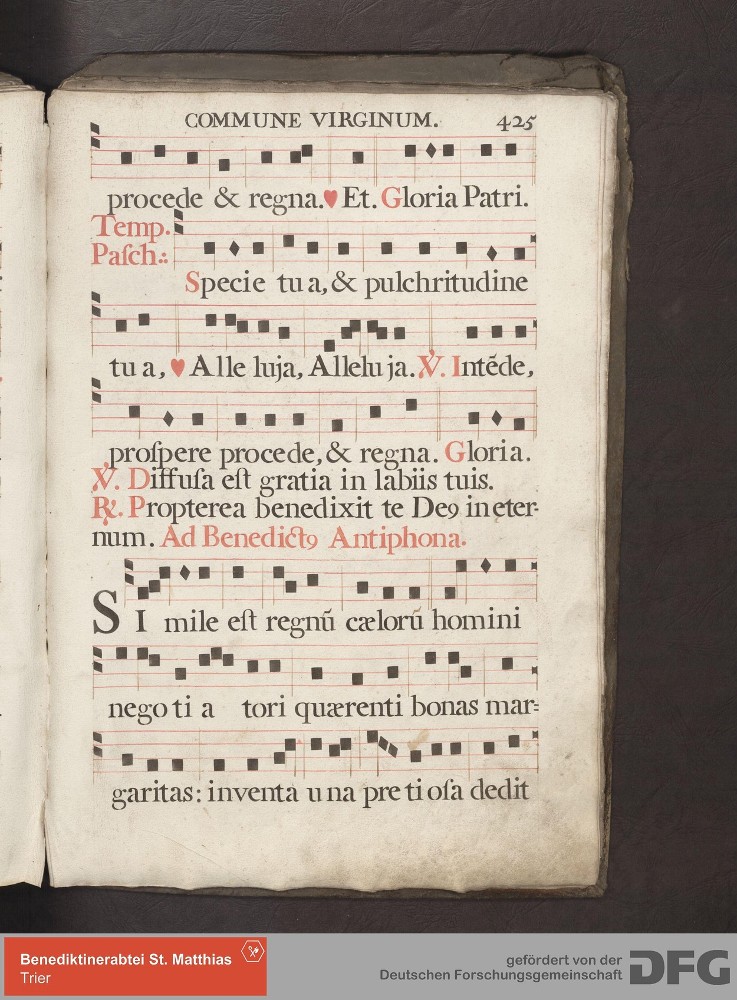 COMMUNE VIRGINUM. 425
procede & regna. ♥ Et. Gloria Patri.
Temp.
Paſch.:
Specie tu a, & pulchritudine
tu a, ♥ Alle luja, Allelu ja. ℣. Intẽde,
proſpere procede, & regna. Gloria.
℣. Diffuſa eſt gratia in labiis tuis.
℟. Propterea benedixit te Deꝰ in eter-
num. Ad Benedictꝰ Antiphona.
SI mile eſt regnũ cælorũ homini
nego ti a tori quærenti bonas mar=
garitas: inventa u na pre ti oſa dedit
Benediktinerabtei St. Matthias
Trier
gefördert von der
Deutschen Forschungsgemeinschaft
DFG